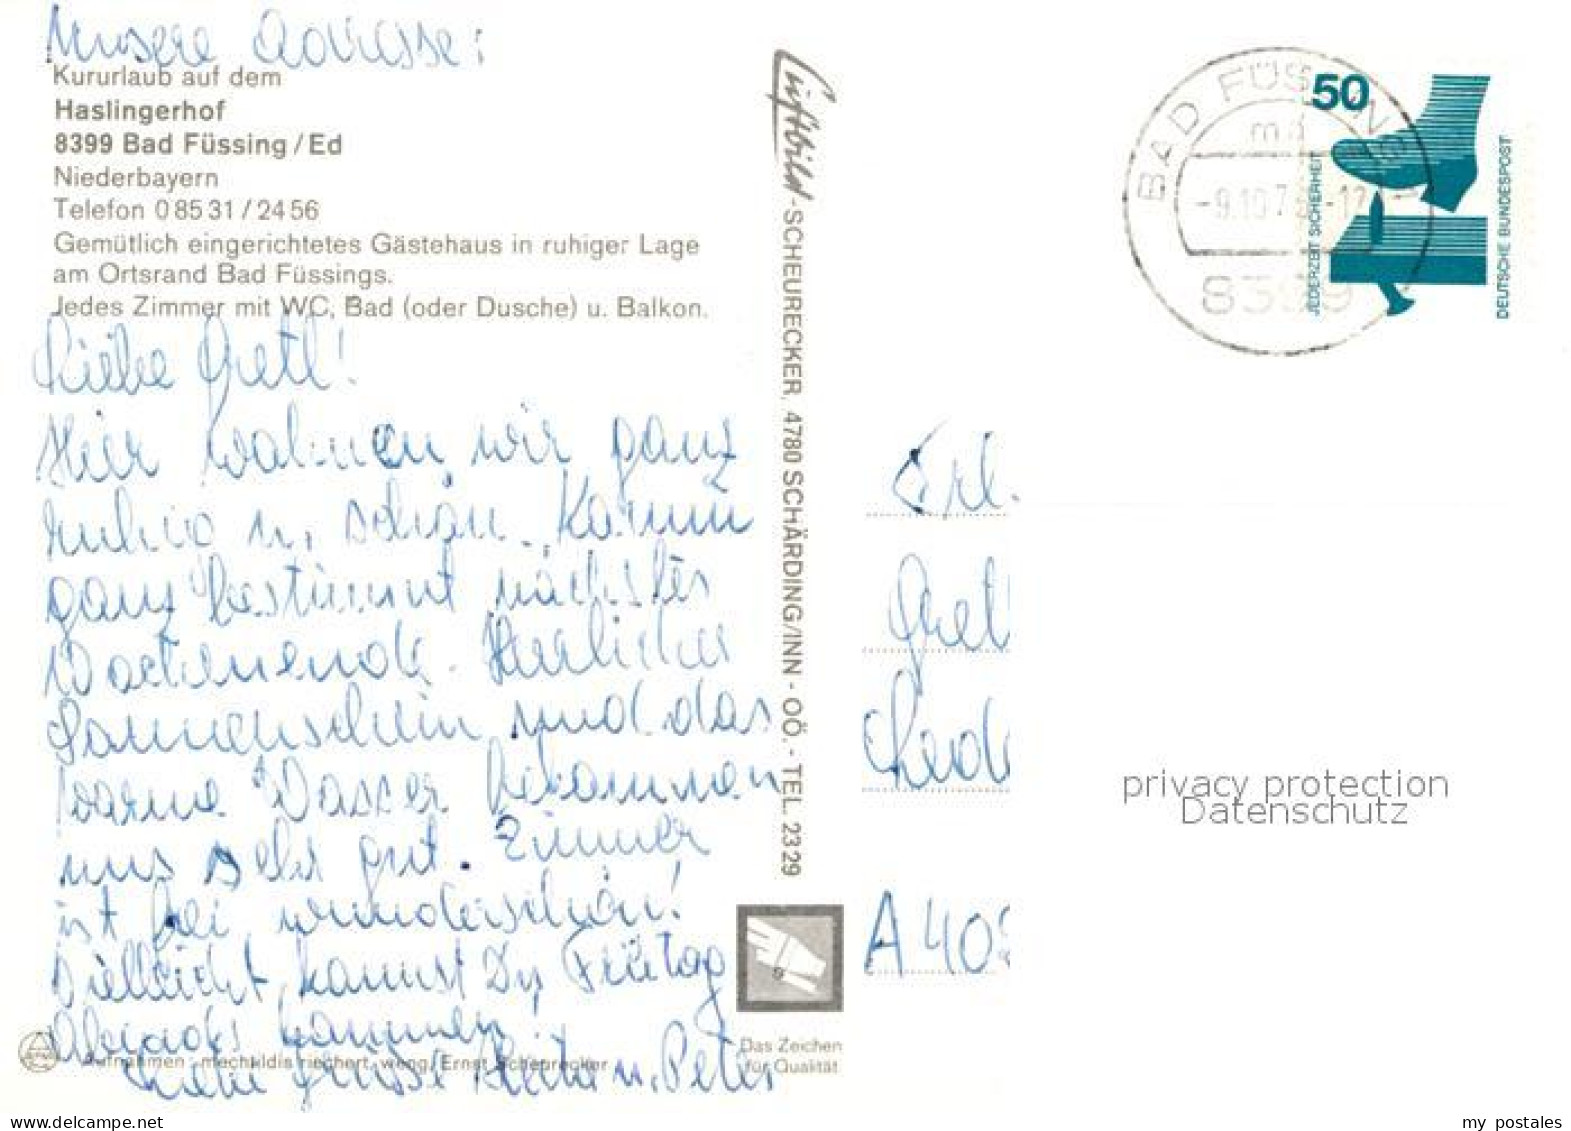 Unsere Adresse:
Kururlaub auf dem
Haslingerhof
8399 Bad Füssing / Ed
Niederbayern
Telefon 0 85 31 / 24 56
Gemütlich eingerichtetes Gästehaus in ruhiger Lage
am Ortsrand Bad Füssings.
Jedes Zimmer mit WC, Bad (oder Dusche) u. Balkon.
Liebe Gretl!
Hier wohnen wir ganz
ruhig u. schön. Komm
ganz bestimmt nächstes
Wochenende. Herrlicher
Sonnenschein und das
warme Wasser bekommen
uns sehr gut. Zimmer
ist frei wunderschön!
Vielleicht kannst Du Freitag
Abends kommen!
Liebe Grüsse Herta u. Peter
Aufnahmen: mechtildis riechert, weng / Ernst Scheurecker
Luftbild - SCHEURECKER, 4780 SCHÄRDING/INN - OÖ. - TEL. 23 29
Das Zeichen
für Qualität
BAD FÜSSING
-9.10.7 -12
8399
50
JEDERZEIT SICHERHEIT
DEUTSCHE BUNDESPOST
Frl.
Gretl
A 40
privacy protection
Datenschutz
https://www.delcampe.net
my_postales